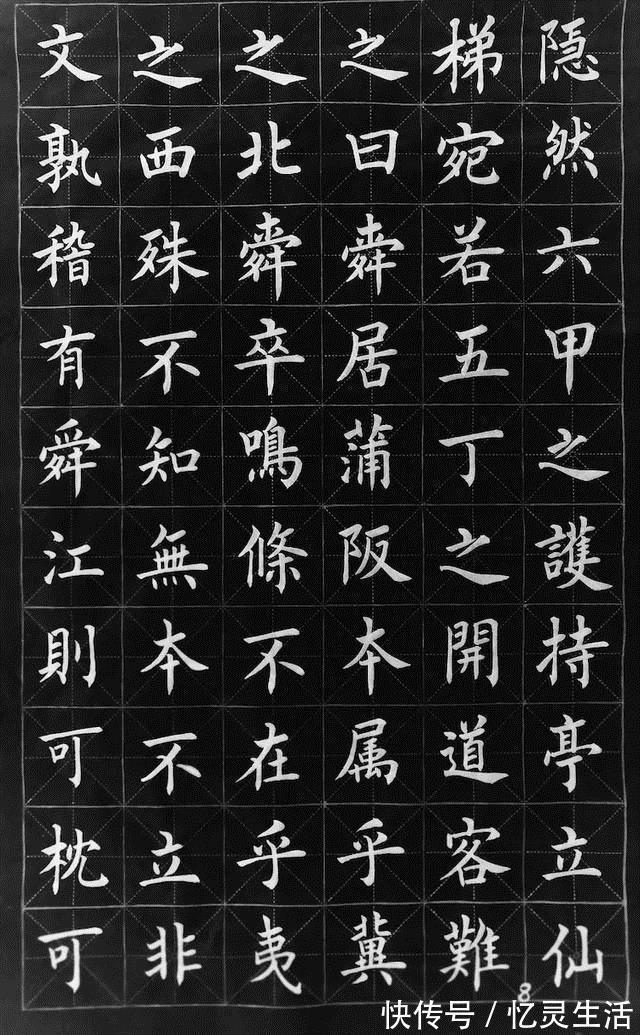 隱然六甲之護持亭立仙
梯宛若五丁之開道客難
之曰舜居蒲阪本属乎冀
之北舜卒鳴條不在乎夷
之西殊不知無本不立非
文孰稽有舜江則可枕可
8
快传号/忆灵生活